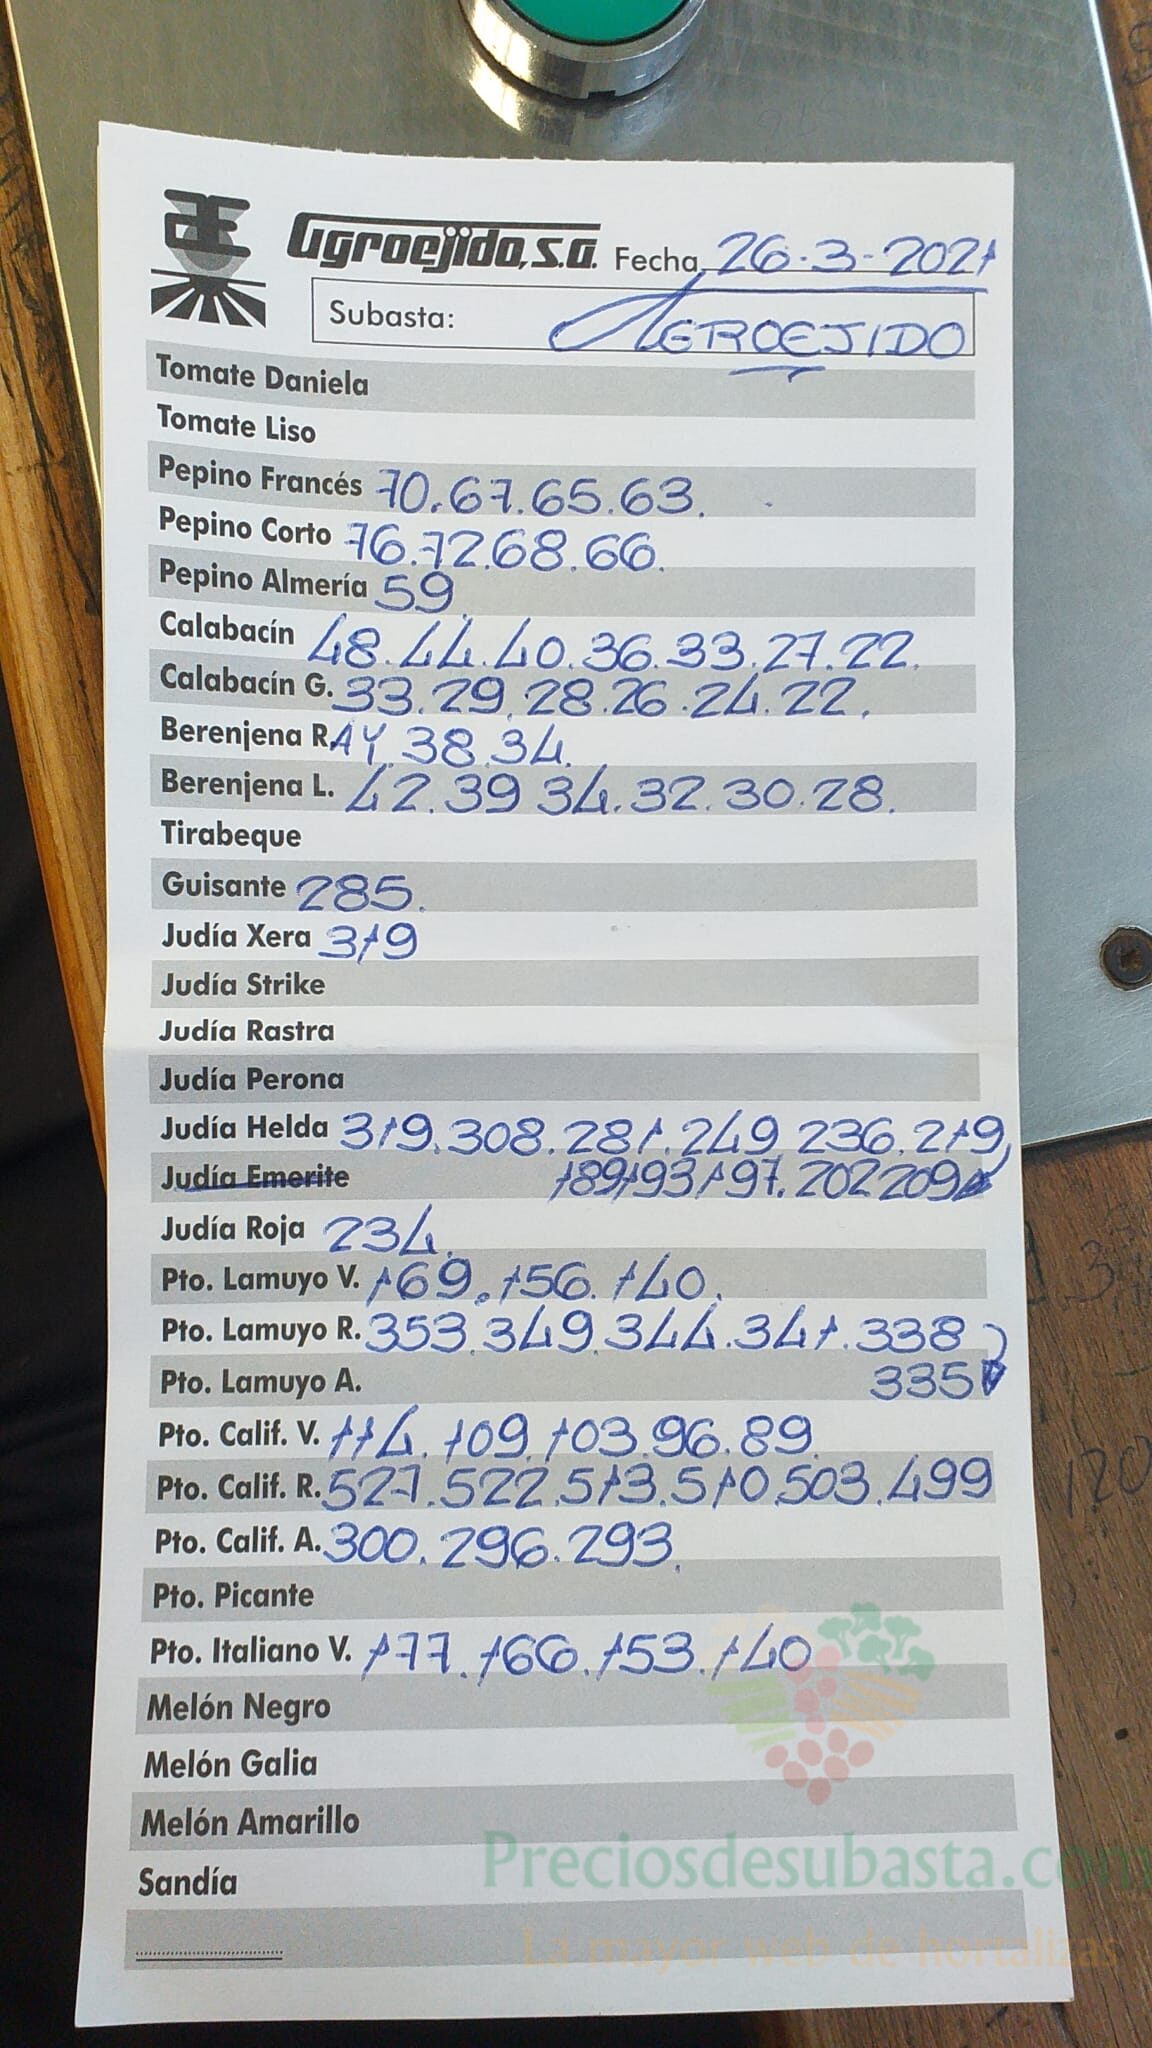 Agroejido, S.A. Fecha 26-3-2021
Subasta: AGROEJIDO
Tomate Daniela
Tomate Liso
Pepino Francés 70.67.65.63.
Pepino Corto 76.72.68.66.
Pepino Almería 59
Calabacín 48.44.40.36.33.27.22.
Calabacín G. 33.29.28.26.24.22.
Berenjena RAY 38.34.
Berenjena L. 42.39 34.32.30.28.
Tirabeque
Guisante 285.
Judía Xera 319
Judía Strike
Judía Rastra
Judía Perona
Judía Helda 319.308.281.249 236.219
Judía Emerite 189 193 197.202 209
Judía Roja 234.
Pto. Lamuyo V. 169.156.140.
Pto. Lamuyo R. 353.349.344.341.338
Pto. Lamuyo A. 335
Pto. Calif. V. 114.109.103.96.89
Pto. Calif. R. 527.522.513.510.503.499
Pto. Calif. A. 300.296.293.
Pto. Picante
Pto. Italiano V. 177.166.153.140
Melón Negro
Melón Galia
Melón Amarillo
Preciosdesubasta.com
Sandía
La mayor web de hortalizas